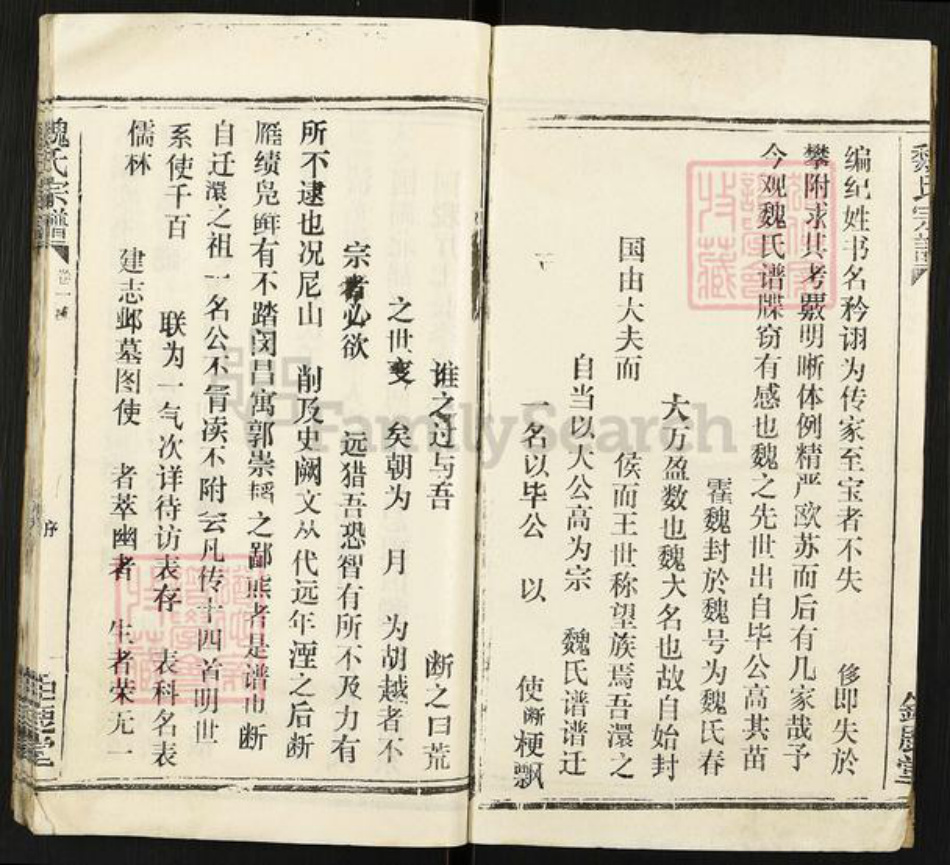 魏氏宗谱
编纪姓书名矜诩为传家至宝者不失 俢即失於
攀附求其考覈明晰体例精严欧苏而后有几家哉予
今观魏氏谱牒窃有感也魏之先世出自毕公高其苗
霍魏封於魏号为魏氏春
大万盈数也魏大名也故自始封
国由大夫而 侯而王世称望族焉吾澴之
自当以大公高为宗 魏氏谱谱迁
一名以毕公 以 使断梗飘
谁之过与吾 断之曰荒
之世 矣朝为 月 为胡越者不
宗者必欲 远猎吾恐智有所不及力有
所不逮也况尼山 削及史阙文从代远年湮之后断
雁绩凫 有不踏闵昌寓郭崇韬之鄙熊者是谱也断
自迁澴之祖一名公不冐渎不附会凡传十四首明世
系使千百 联为一气次详待访表存 表科名表
儒林 建志邺墓图使 者萃幽者 生者荣无一
魏氏宗谱 卷一 序
FamilySearch